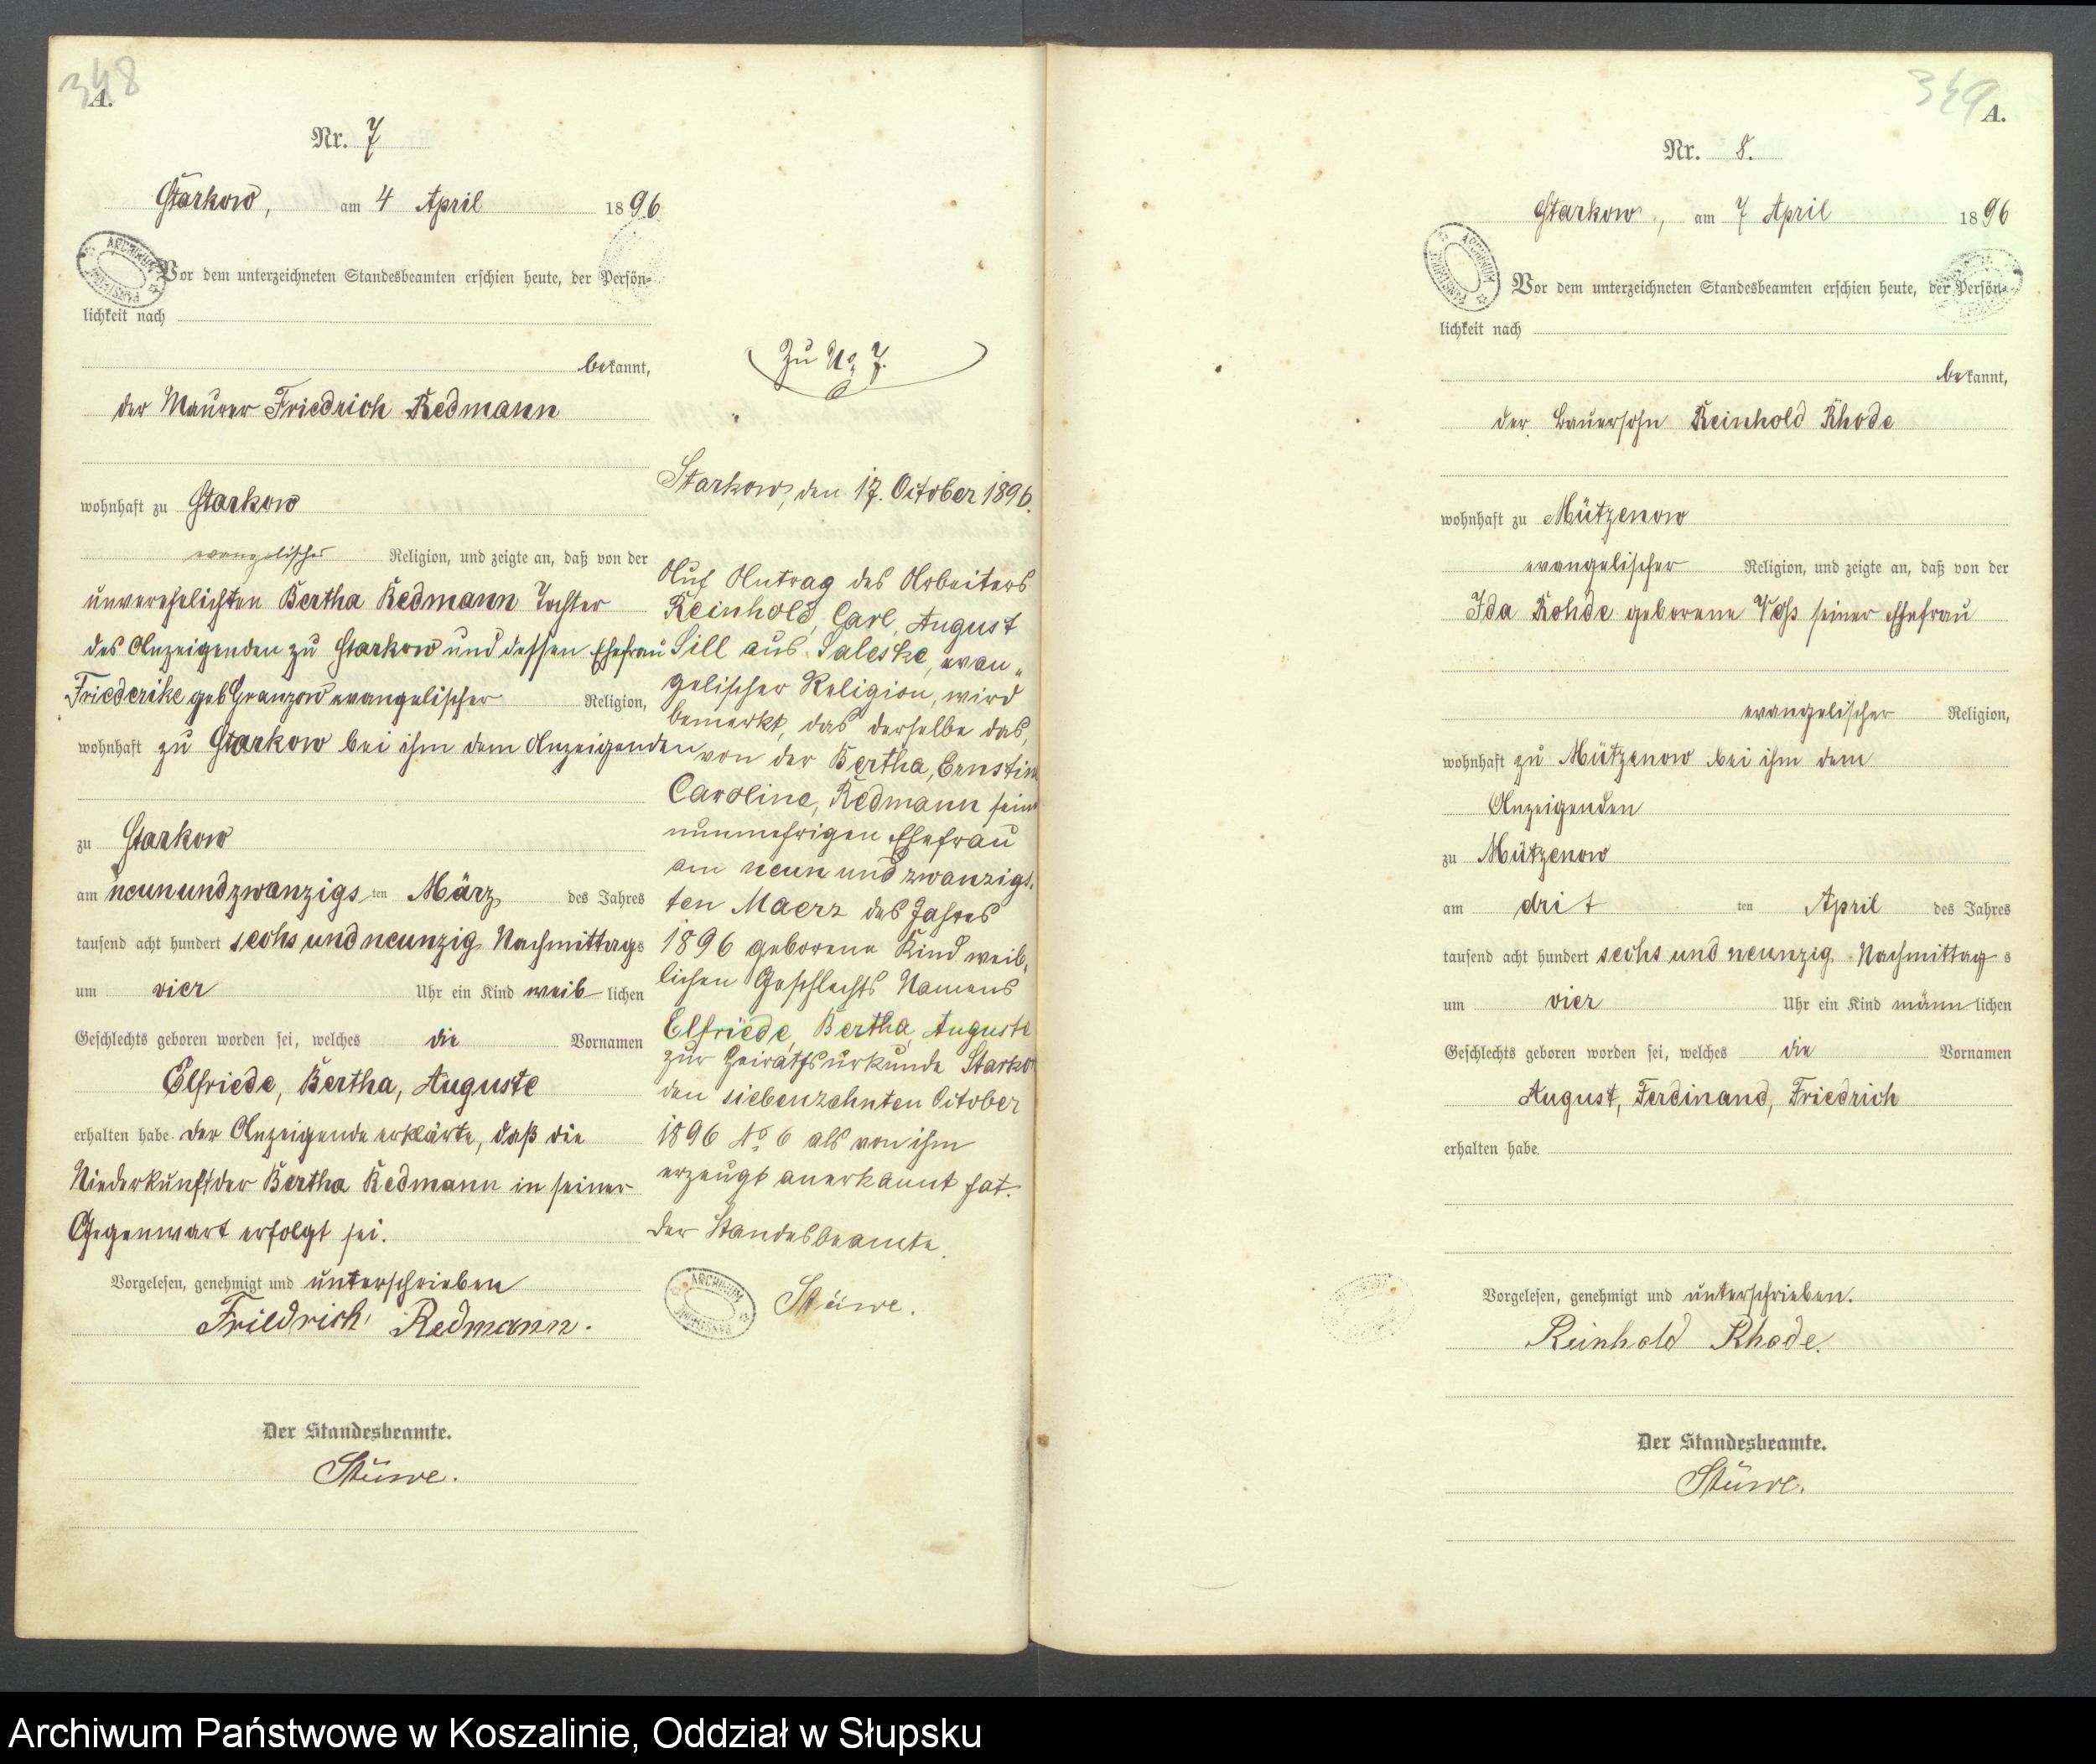 348
A.
Nr. 7
Starkow, am 4 April 1896
Vor dem unterzeichneten Standesbeamten erschien heute, der Persön=
lichkeit nach
bekannt,
der Maurer Friedrich Redmann
wohnhaft zu Starkow
evangelischer Religion, und zeigte an, daß von der
unverehelichten Bertha Redmann Tochter
des Anzeigenden zu Starkow und dessen Ehefrau
Friederike geb Granzow evangelischer Religion,
wohnhaft zu Starkow bei ihm dem Anzeigenden
zu Starkow
am neunundzwanzigsten März des Jahres
tausend acht hundert sechs und neunzig Nachmittags
um vier Uhr ein Kind weiblichen
Geschlechts geboren worden sei, welches die Vornamen
Elfriede, Bertha, Auguste
erhalten habe. Der Anzeigende erklärte, daß die
Niederkunft der Bertha Redmann in seiner
Gegenwart erfolgt sei.
Vorgelesen, genehmigt und unterschrieben
Friedrich Redmann.
Der Standesbeamte.
Stüwe.
Zu No 7.
Starkow, den 17. October 1896.
Auf Antrag des Arbeiters
Reinhold, Carl, August
Sill aus Saleske, evan„
gelischer Religion, wird
bemerkt, das derselbe das,
von der Bertha, Ernstine
Caroline, Redmann seine
nunmehrigen Ehefrau
am neun und zwanzigs.
ten Maerz des Jahres
1896 geborene Kind weib„
lichen Geschlechts Namens
Elfriede, Bertha, Auguste
zur Heirathsurkunde Starko
den siebenzehnten October
1896 No 6 als von ihm
erzeugt anerkannt hat.
Der Standesbeamte.
ARCHIWUM PAŃSTWOWE
Stüwe.
349
A.
Nr. 8.
Starkow, am 7 April 1896
ARCHIWUM PAŃSTWOWE
Vor dem unterzeichneten Standesbeamten erschien heute, der Persön=
lichkeit nach
bekannt,
der Bauersohn Reinhold Rhode
wohnhaft zu Mützenow
evangelischer Religion, und zeigte an, daß von der
Ida Rohde geborene Voß seiner Ehefrau
evangelischer Religion,
wohnhaft zu Mützenow bei ihm dem
Anzeigenden
zu Mützenow
am dritten April des Jahres
tausend acht hundert sechs und neunzig Nachmittags
um vier Uhr ein Kind männlichen
Geschlechts geboren worden sei, welches die Vornamen
August, Ferdinand, Friedrich
erhalten habe.
Vorgelesen, genehmigt und unterschrieben.
Reinhold Rhode.
Der Standesbeamte.
Stüwe.
Archiwum Państwowe w Koszalinie, Oddział w Słupsku